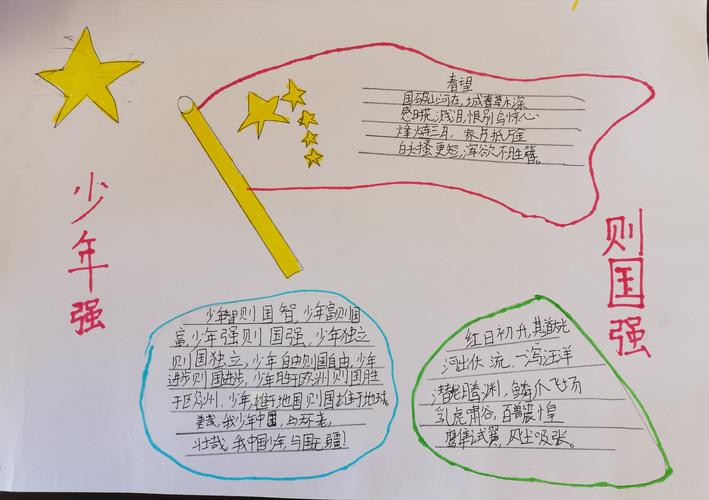 少年强
则国强
春望
国破山河在,城春草木深
感时花溅泪,恨别鸟惊心
烽火连三月,家书抵万金
白头搔更短,浑欲不胜簪。
少年智则国智,少年富则国
富,少年强则国强,少年独立
则国独立,少年自由则国自由,少年
进步则国进步,少年胜于欧洲则国胜
于欧洲,少年,雄于地国则国雄于地球。
美哉,我少年中国,与天不老,
壮哉,我中国少年与国无疆!
红日初升,其道大光
河出伏流,一泻汪洋
潜龙腾渊,鳞爪飞扬
乳虎啸谷,百兽震惶
鹰隼试翼,风尘吸张。